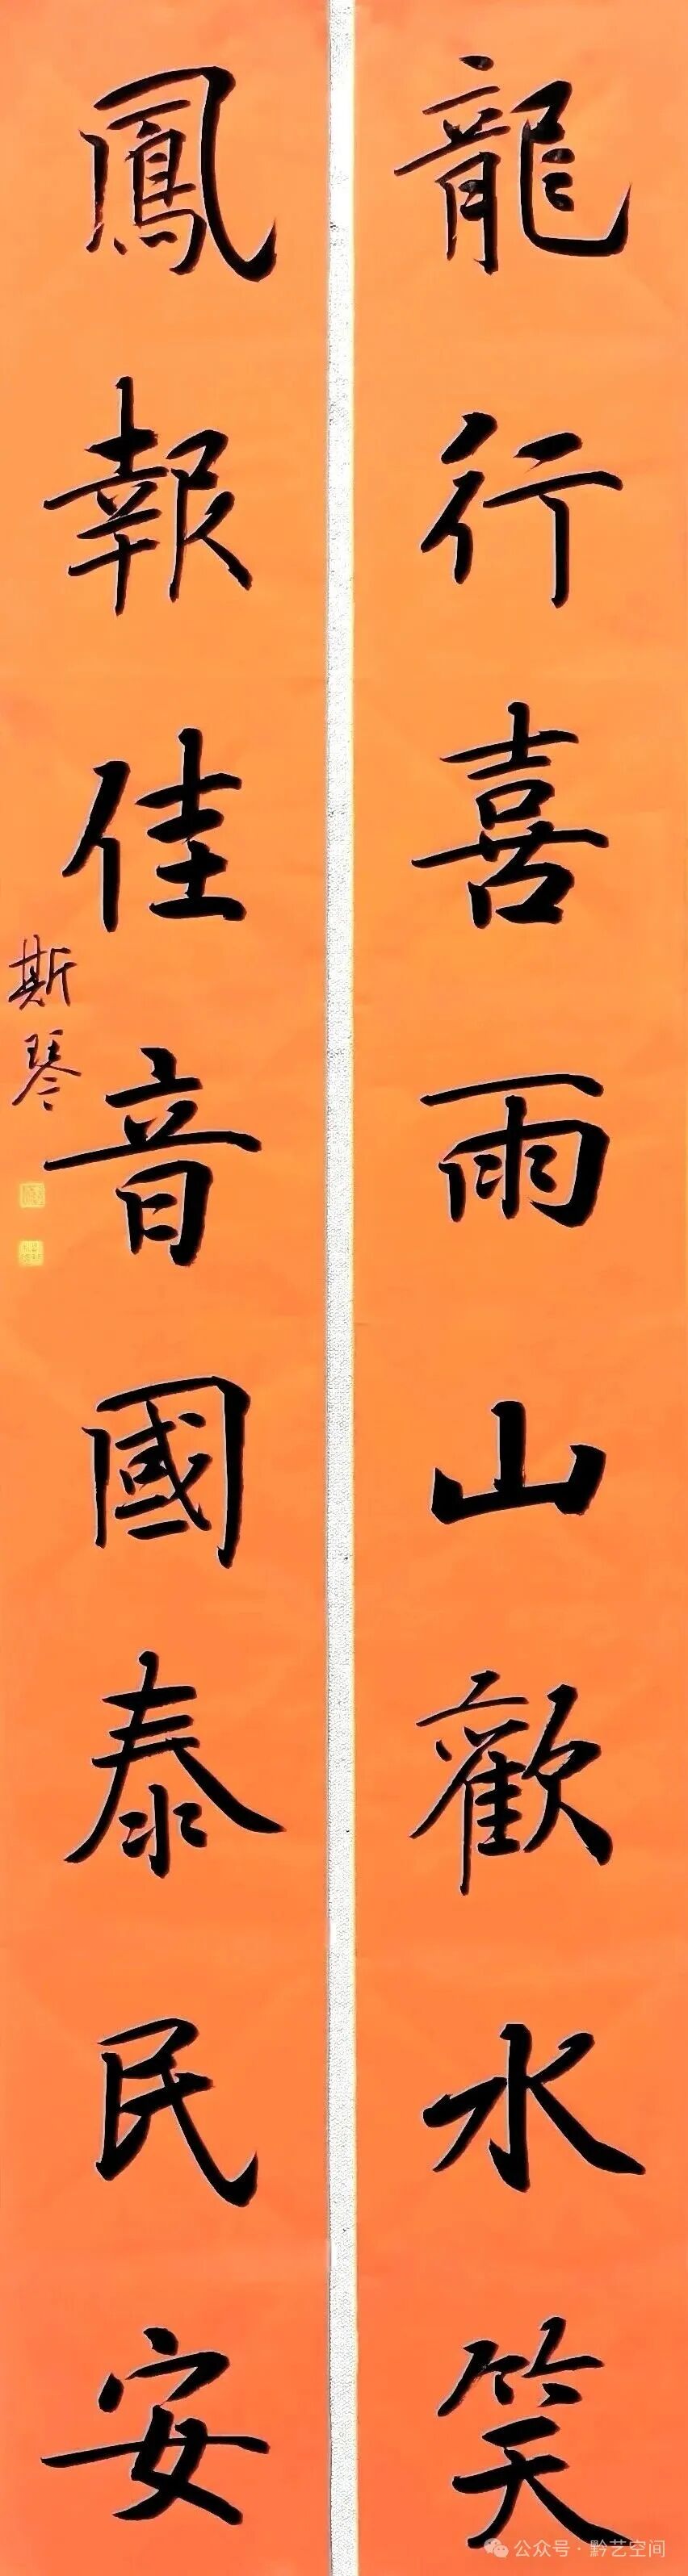 龍行喜雨山歡水笑
鳳報佳音國泰民安
斯琴
公众号·黔艺空间